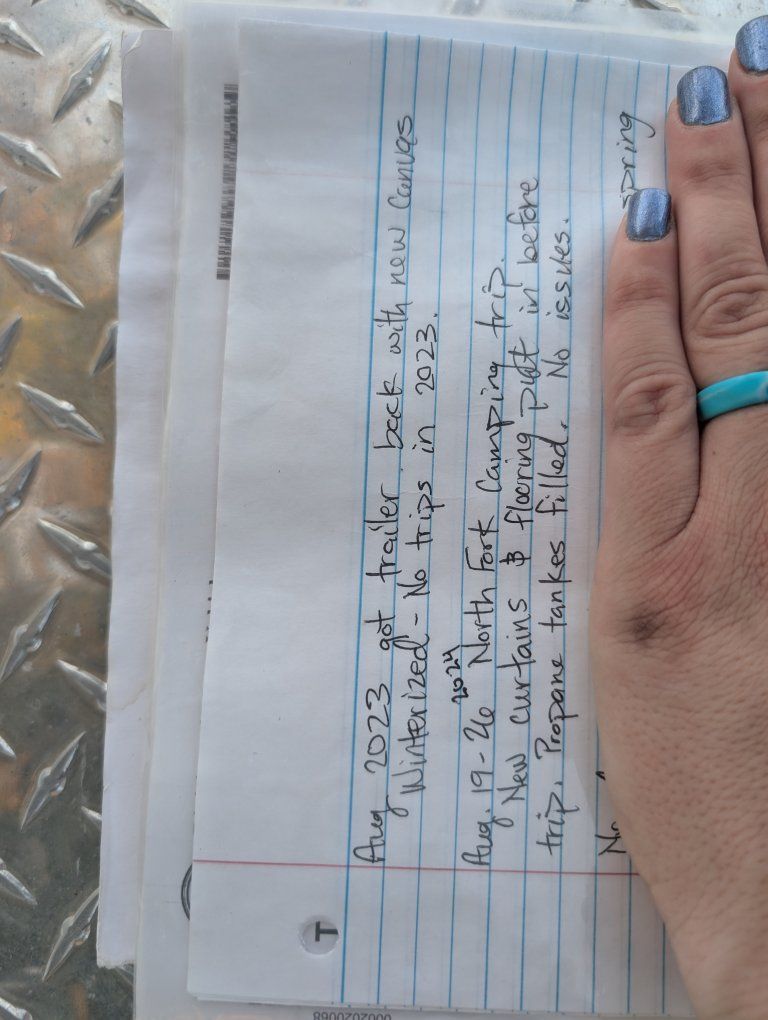 Aug 2023 got trailer back with new Canvas
Winterized - No trips in 2023.
2024
Aug. 19-26 North Fork Camping trip.
New curtains & flooring put in before
trip. Propane tankes filled. No issues.
spring
T
0002020068